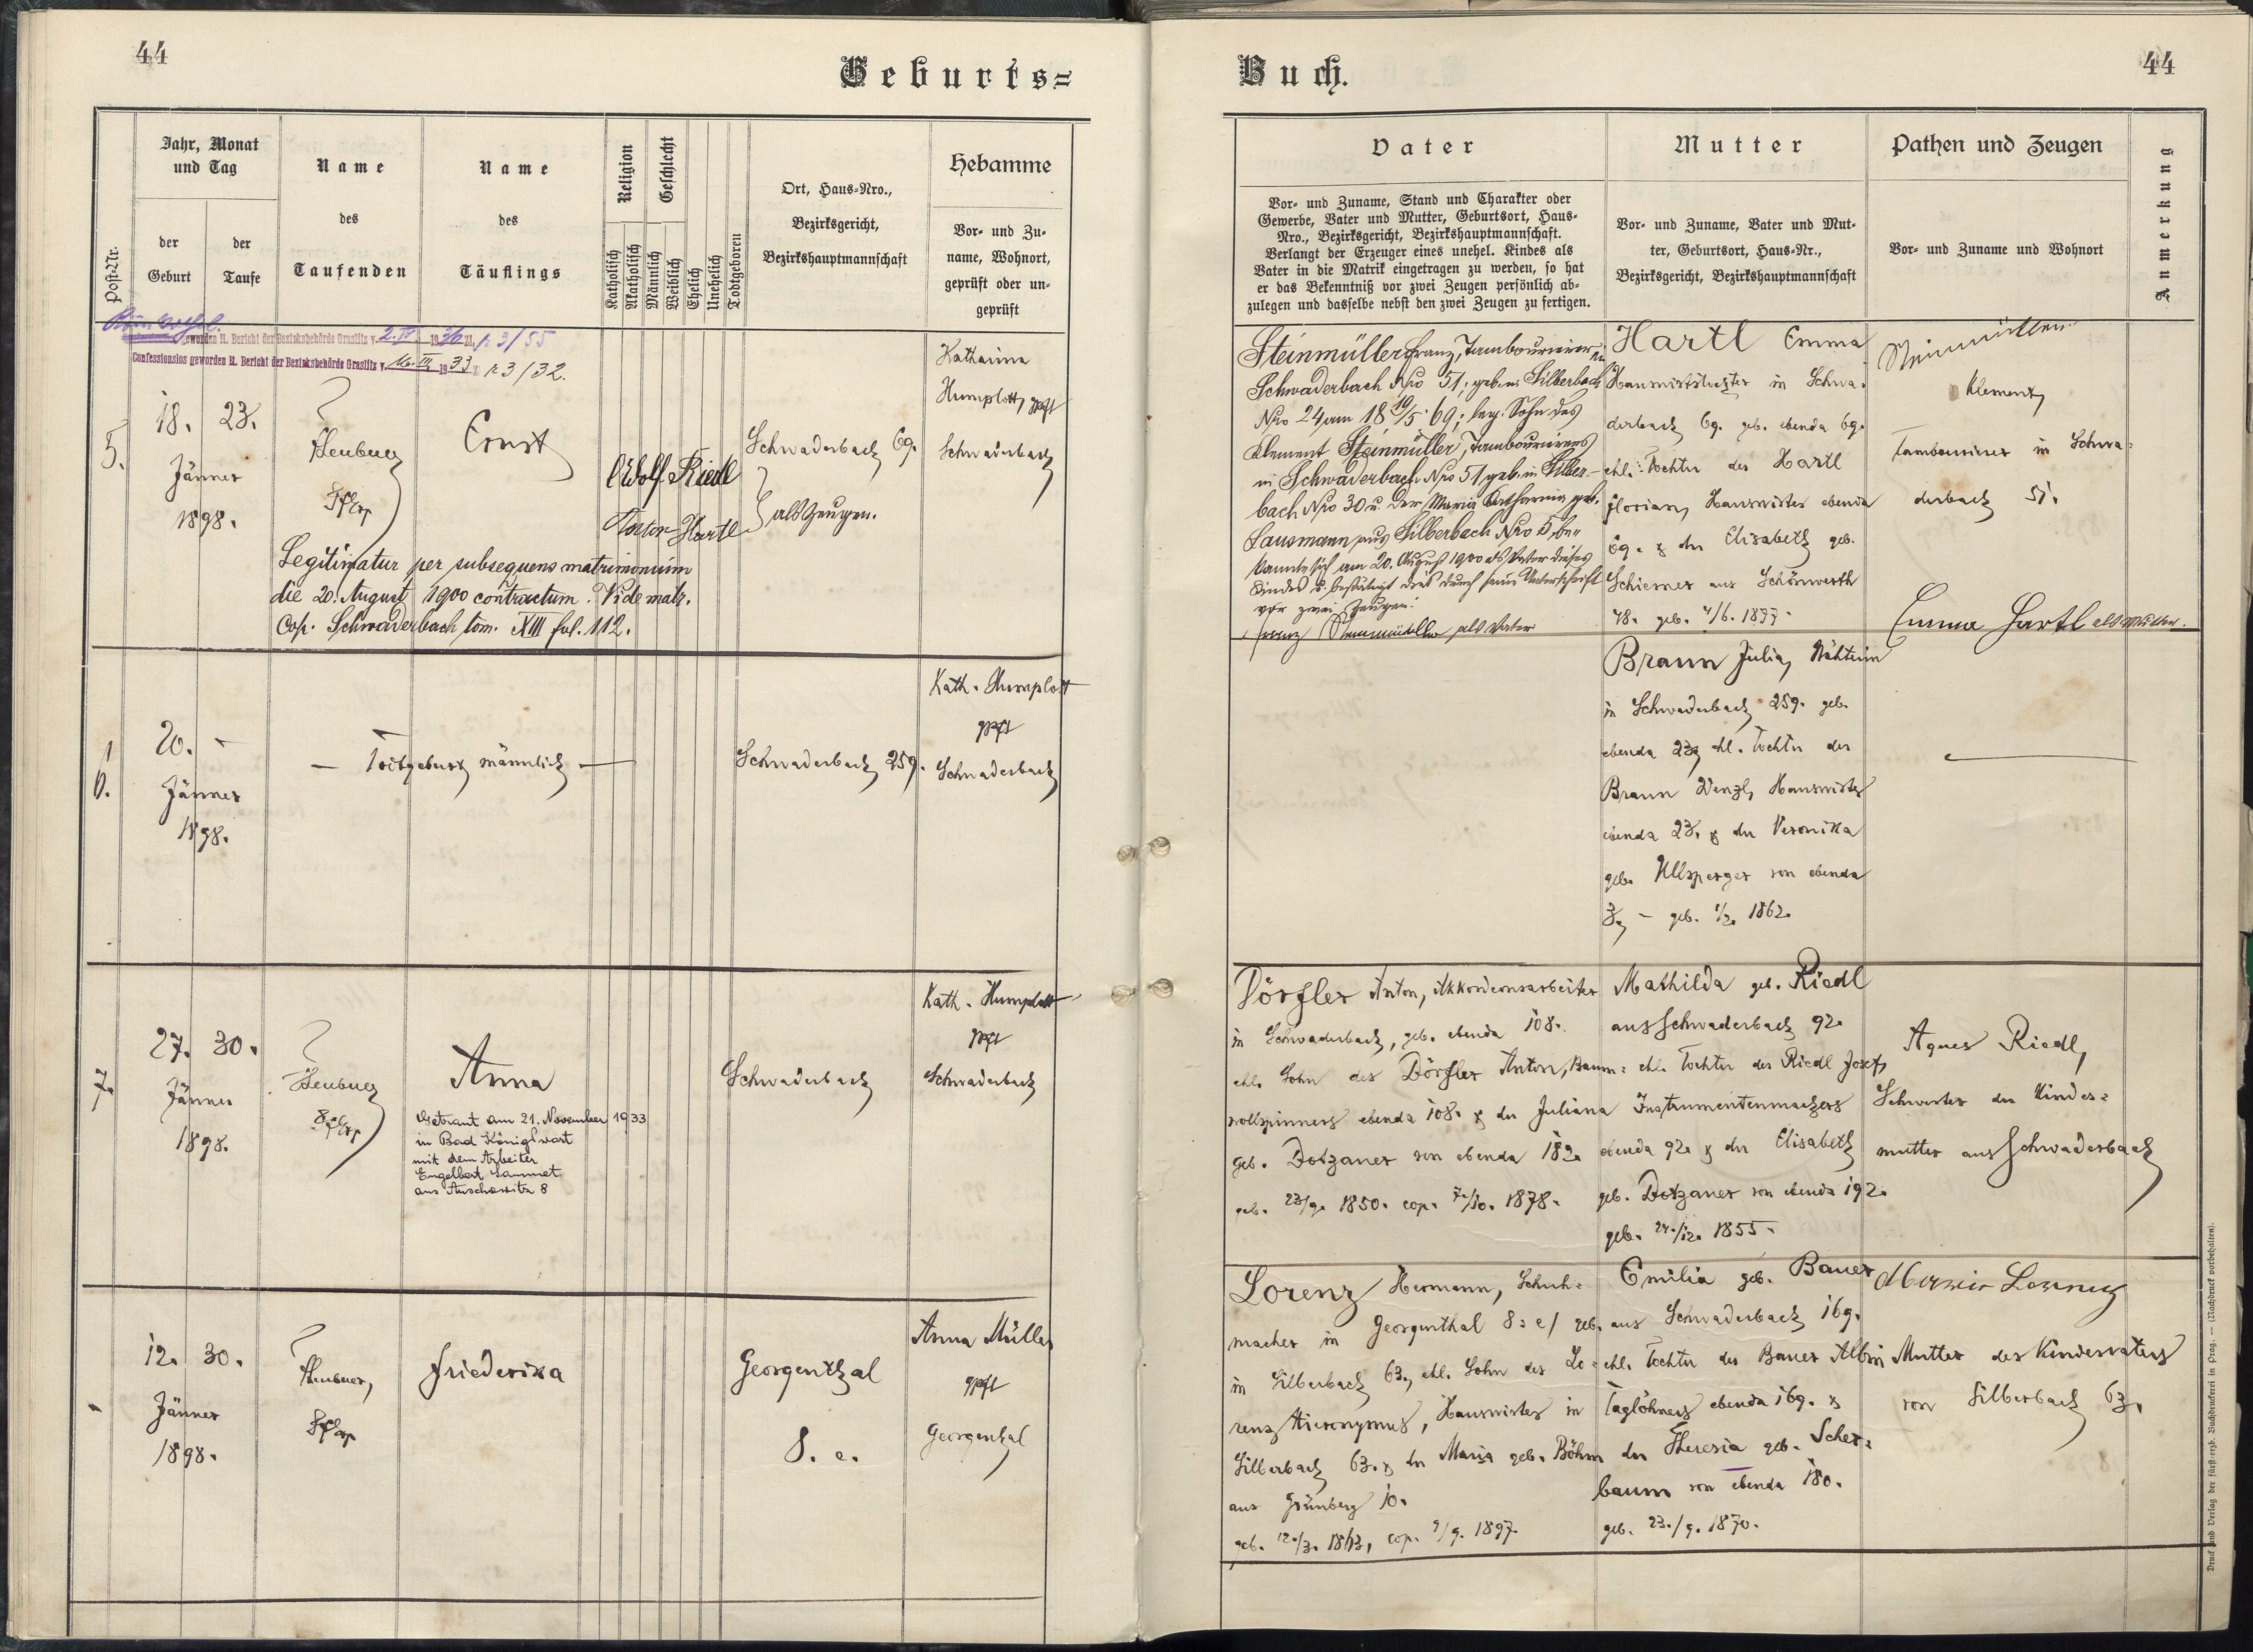 44
Geburts=
Jahr, Monat
und Tag
Name
des
Taufenden
Name
des
Täuflings
Religion
Geschlecht
Ort, Haus=Nro.,
Bezirksgericht,
Bezirkshauptmannschaft
Hebamme
Post=Nr.
der
Geburt
der
Taufe
Katholisch
Akatholisch
Männlich
Weiblich
Ehelich
Unehelich
Todtgeboren
Vor= und Zu=
name, Wohnort,
geprüft oder un=
geprüft
geworden lt. Bericht der Bezirksbehörde Graslitz v. 2. IV. 1936 Zl. 3/55
Confessionslos geworden lt. Bericht der Bezirksbehörde Graslitz v. III. 1933 Z. 3/32.
5.
18. 23.
Jänner
1898.
Ernst
Adolf Riedl
Anton Hartl
als Zeugen.
Schwaderbach 69.
Katharina
Humplott, gpft
Schwaderbach
Legitimatur per subsequens matrimonium
die 20. August 1900 contractum. Vide matr.
Cop. Schwaderbach tom. XIII fol. 112.
6.
20. –
Jänner
1898.
— Todtgeburt männlich —
Schwaderbach 259.
Kath. Humplott
gpft
Schwaderbach
7.
27. 30.
Jänner
1898.
Anna
Getraut am 21. November 1933
in Bad Königswart
mit dem Arbeiter
Engelbert Sammet
aus 8
Schwaderbach
Kath. Humplott
gpft
Schwaderbach
12. 30.
Jänner
1898.
Friederika
Georgenthal
8. e.
Anna Müller
gpft
Georgenthal
Buch.
44
Vater
Vor= und Zuname, Stand und Charakter oder
Gewerbe, Vater und Mutter, Geburtsort, Haus=
Nro., Bezirksgericht, Bezirkshauptmannschaft.
Verlangt der Erzeuger eines unehel. Kindes als
Vater in die Matrik eingetragen zu werden, so hat
er das Bekenntniß vor zwei Zeugen persönlich ab=
zulegen und dasselbe nebst den zwei Zeugen zu fertigen.
Mutter
Vor= und Zuname, Vater und Mut=
ter, Geburtsort, Haus=Nr.,
Bezirksgericht, Bezirkshauptmannschaft
Pathen und Zeugen
Vor= und Zuname und Wohnort
Anmerkung
Steinmüller Franz, Tambourirer in
Schwaderbach Nro 51, geb. in Silberbach
Nro 24 am 18 19/5 69; leg. Sohn des
Klement Steinmüller, Tambourirers
in Schwaderbach Nro 51 geb. in Silber-
bach Nro 30 u. der Maria Katharina geb.
Lausmann aus Silberbach Nro 5, be=
kannte sich am 20. August 1900 als Vater dieses
Kindes u. bestätigt dies durch seine Unterschrift
vor zwei Zeugen:
Franz Steinmüller als Vater
Hartl Emma
Hauswirthstochter in Schwa=
derbach 69. geb. ebenda 69.
ehl. Tochter des Hartl
Florian, Hauswirthes ebenda
69. & der Elisabeth geb.
Schiemer aus Schönwerth
48. geb. 4/6. 1877.
Steinmüller
Klement,
Tambourirer in Schwa=
derbach 51.
Emma Hartl als Mutter.
Braun Julia, Nähterin
in Schwaderbach 259. geb.
ebenda 23, ehl. Tochter des
Braun Wenzl, Hauswirthes
ebenda 23. & der Veronika
geb. Ullsperger von ebenda
3, – geb. 1/2. 1862.
Dörfler Anton, Akkordeonsarbeiter
in Schwaderbach, geb. ebenda 108.
ehl. Sohn des Dörfler Anton, Baum=
wollspinners ebenda 108. & der Juliana
geb. Dotzauer von ebenda 182.
geb. 23/9. 1850. cop. 7./10. 1878.
Mathilda geb. Riedl
aus Schwaderbach 92.
ehl. Tochter des Riedl Josef,
Instrumentenmachers
ebenda 92. & der Elisabeth
geb. Dotzauer von ebenda 192.
geb. 24./12. 1855.
Agnes Riedl,
Schwester der Kindes=
mutter aus Schwaderbach
Lorenz Hermann, Schuh=
macher in Georgenthal 8: e/ geb.
in Silberbach 63, ehl. Sohn des Lo=
renz Hieronymus, Hauswirthes in
Silberbach 63. & der Maria geb. Böhm
aus Grünberg 10.
geb. 12./3. 1863, cop. 9/9. 1897.
Emilia geb. Bauer
aus Schwaderbach 169.
ehl. Tochter des Bauer Albin
Taglöhners ebenda 169. &
der Theresia geb. Scher=
baum von ebenda 180.
geb. 23./9. 1870.
Maria Lorenz
Mutter des Kindesvaters
von Silberbach 63.
Druck und Verlag der fürst=erzb. Buchdruckerei in Prag. — (Nachdruck vorbehalten).